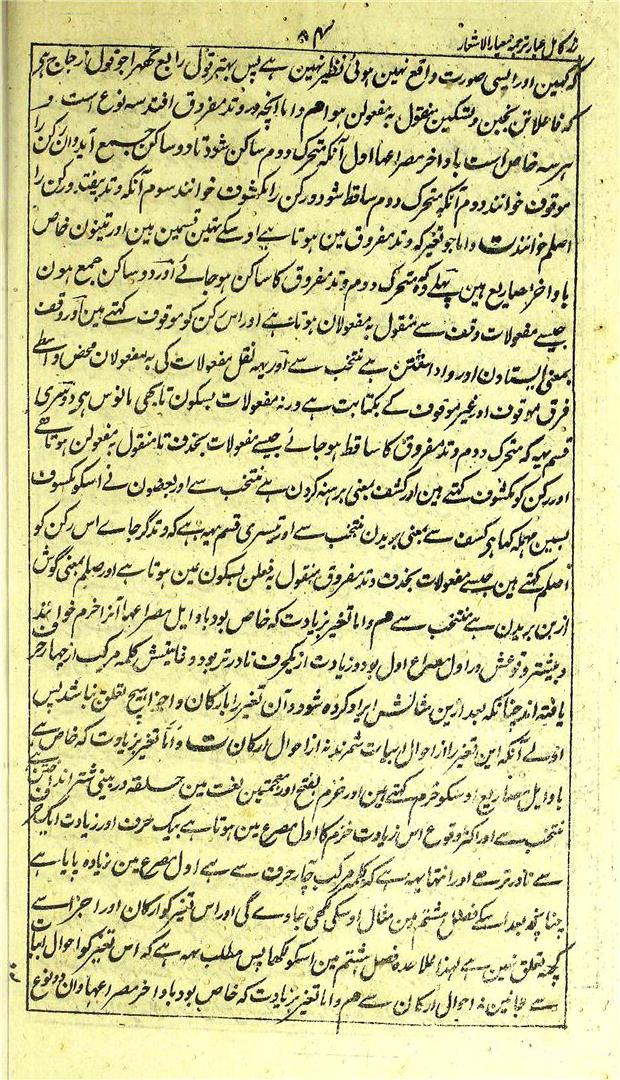 زر کامل عیار ترجمہ معیار الاشعار
کہ کہین اور ایسی صورت واقع نہین ہوئی نظیر نہین ہے پس بہتر قول رابع ٹھہرا جو قول زجاج ہی
کہ فاعلاتن بخبن و تسکین منقول بہ مفعولن ہوا ھم و اما آنچہ در وتد مفروق افتد سہ نوع است و
ہر سہ خاص است باواخر مصراعہا اول آنکہ متحرک دوم ساکن شود تا دو ساکن جمع آید و آن رکن را
موقوف خوانند دوم آنکہ متحرک دوم ساقط شود و رکن را مکشوف خوانند سوم آنکہ وتد بیفتد و رکن را
اصلم خوانند ت و اما جو تغیر کہ وتد مفروق مین ہوتا ہے اوسکے تین قسمین ہین اور تینون خاص
باواخر مصاریع ہین پہلے وہ کہ متحرک دوم وتد مفروق کا ساکن ہو جائے اور دو ساکن جمع ہون
جیسے مفعولات وقف سے منقول بہ مفعولان ہوتا ہے اور اس رکن کو موقوف کہتے ہین اور وقف
بمعنی ایستادن اور وا داشتن ہے منتخب سے اور یہہ نقل مفعولات کی بہ مفعولان محض واسطے
فرق موقوف اور غیر موقوف کے بکتابت ہے ورنہ مفعولات بسکون تا بھی مانوس ہی دوسری
قسم یہہ کہ متحرک دوم وتد مفروق کا ساقط ہو جائے جیسے مفعولات بحذف تا منقول بہ مفعولن ہوتا ہے
اور رکن کو مکشوف کہتے ہین اور کشف بمعنی برہنہ کردن ہے منتخب سے اور بعضون نے اسکو مکسوف
بسین مہملہ کہا ہی کسف سے بمعنی بریدن منتخب سے اور تیسری قسم یہہ ہے کہ وتد گر جاے اس رکن کو
اصلم کہتے ہین جیسے مفعولات بحذف وتد مفروق منقول بہ فعلن بسکون عین ہوتا ہے اور صلم بمعنی گوش
از بن بریدن ہے منتخب سے ھم و اما تغیر بزیادت کہ خاص بود باوایل مصراعہا آنرا خزم خوانند
و بیشتر وقوعش در اول مصراع اول بود و زیادت از یکحرف نادر تر بود و غایتش کلمہ مرکب از چہار حرف
یافتہ اند چنانکہ بعد ازین مثالش ایراد کردہ شود و آن تغیر را بارکان و اجزا ہیچ تعلق نباشد پس
اولی آنکہ این تغیر را از احوال ابیات شمرند نہ از احوال ارکان ت و اما تغیر بزیادت کہ خاص ہے
باوایل مصاریع اوسکو خزم کہتے ہین اور خزم بفتح اور معجمتین لغت مین حلقہ در بینی شتر انداختن ہے
منتخب سے اور اکثر وقوع اس زیادت خزم کا اول مصرع مین ہوتا ہے بیک حرف اور زیادت ایک حرف
سے نادر تر ہے اور انتہا یہہ ہے کہ کلمہ مرکب چار حرف سے ہے اول مصرع مین زیادہ پایا ہے
چنانچہ بعد اسکے فصل ہشتم مین مثال اوسکی لکھی جاوے گی اور اس تغیر کو ارکان اور اجزا سے
کچھ تعلق نہین ہے لہذا علاحدہ فصل ہشتم مین اسکو لکھا پس مطلب یہہ ہے کہ اس تغیر کو احوال ابیات
سے جانین نہ احوال ارکان سے ھم و اما تغیر بزیادت کہ خاص بود باواخر مصراعہا و ان دو نوع